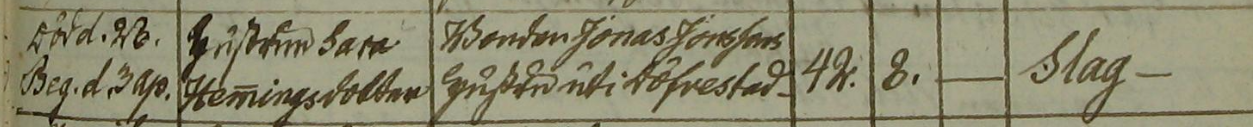 Död d. 28. Hustrun Sara Bonden Jonas Jönssons
Beg. d. 3 ap. Hemingsdotter Hustru uti Döfrestad 42. 8. — Slag —